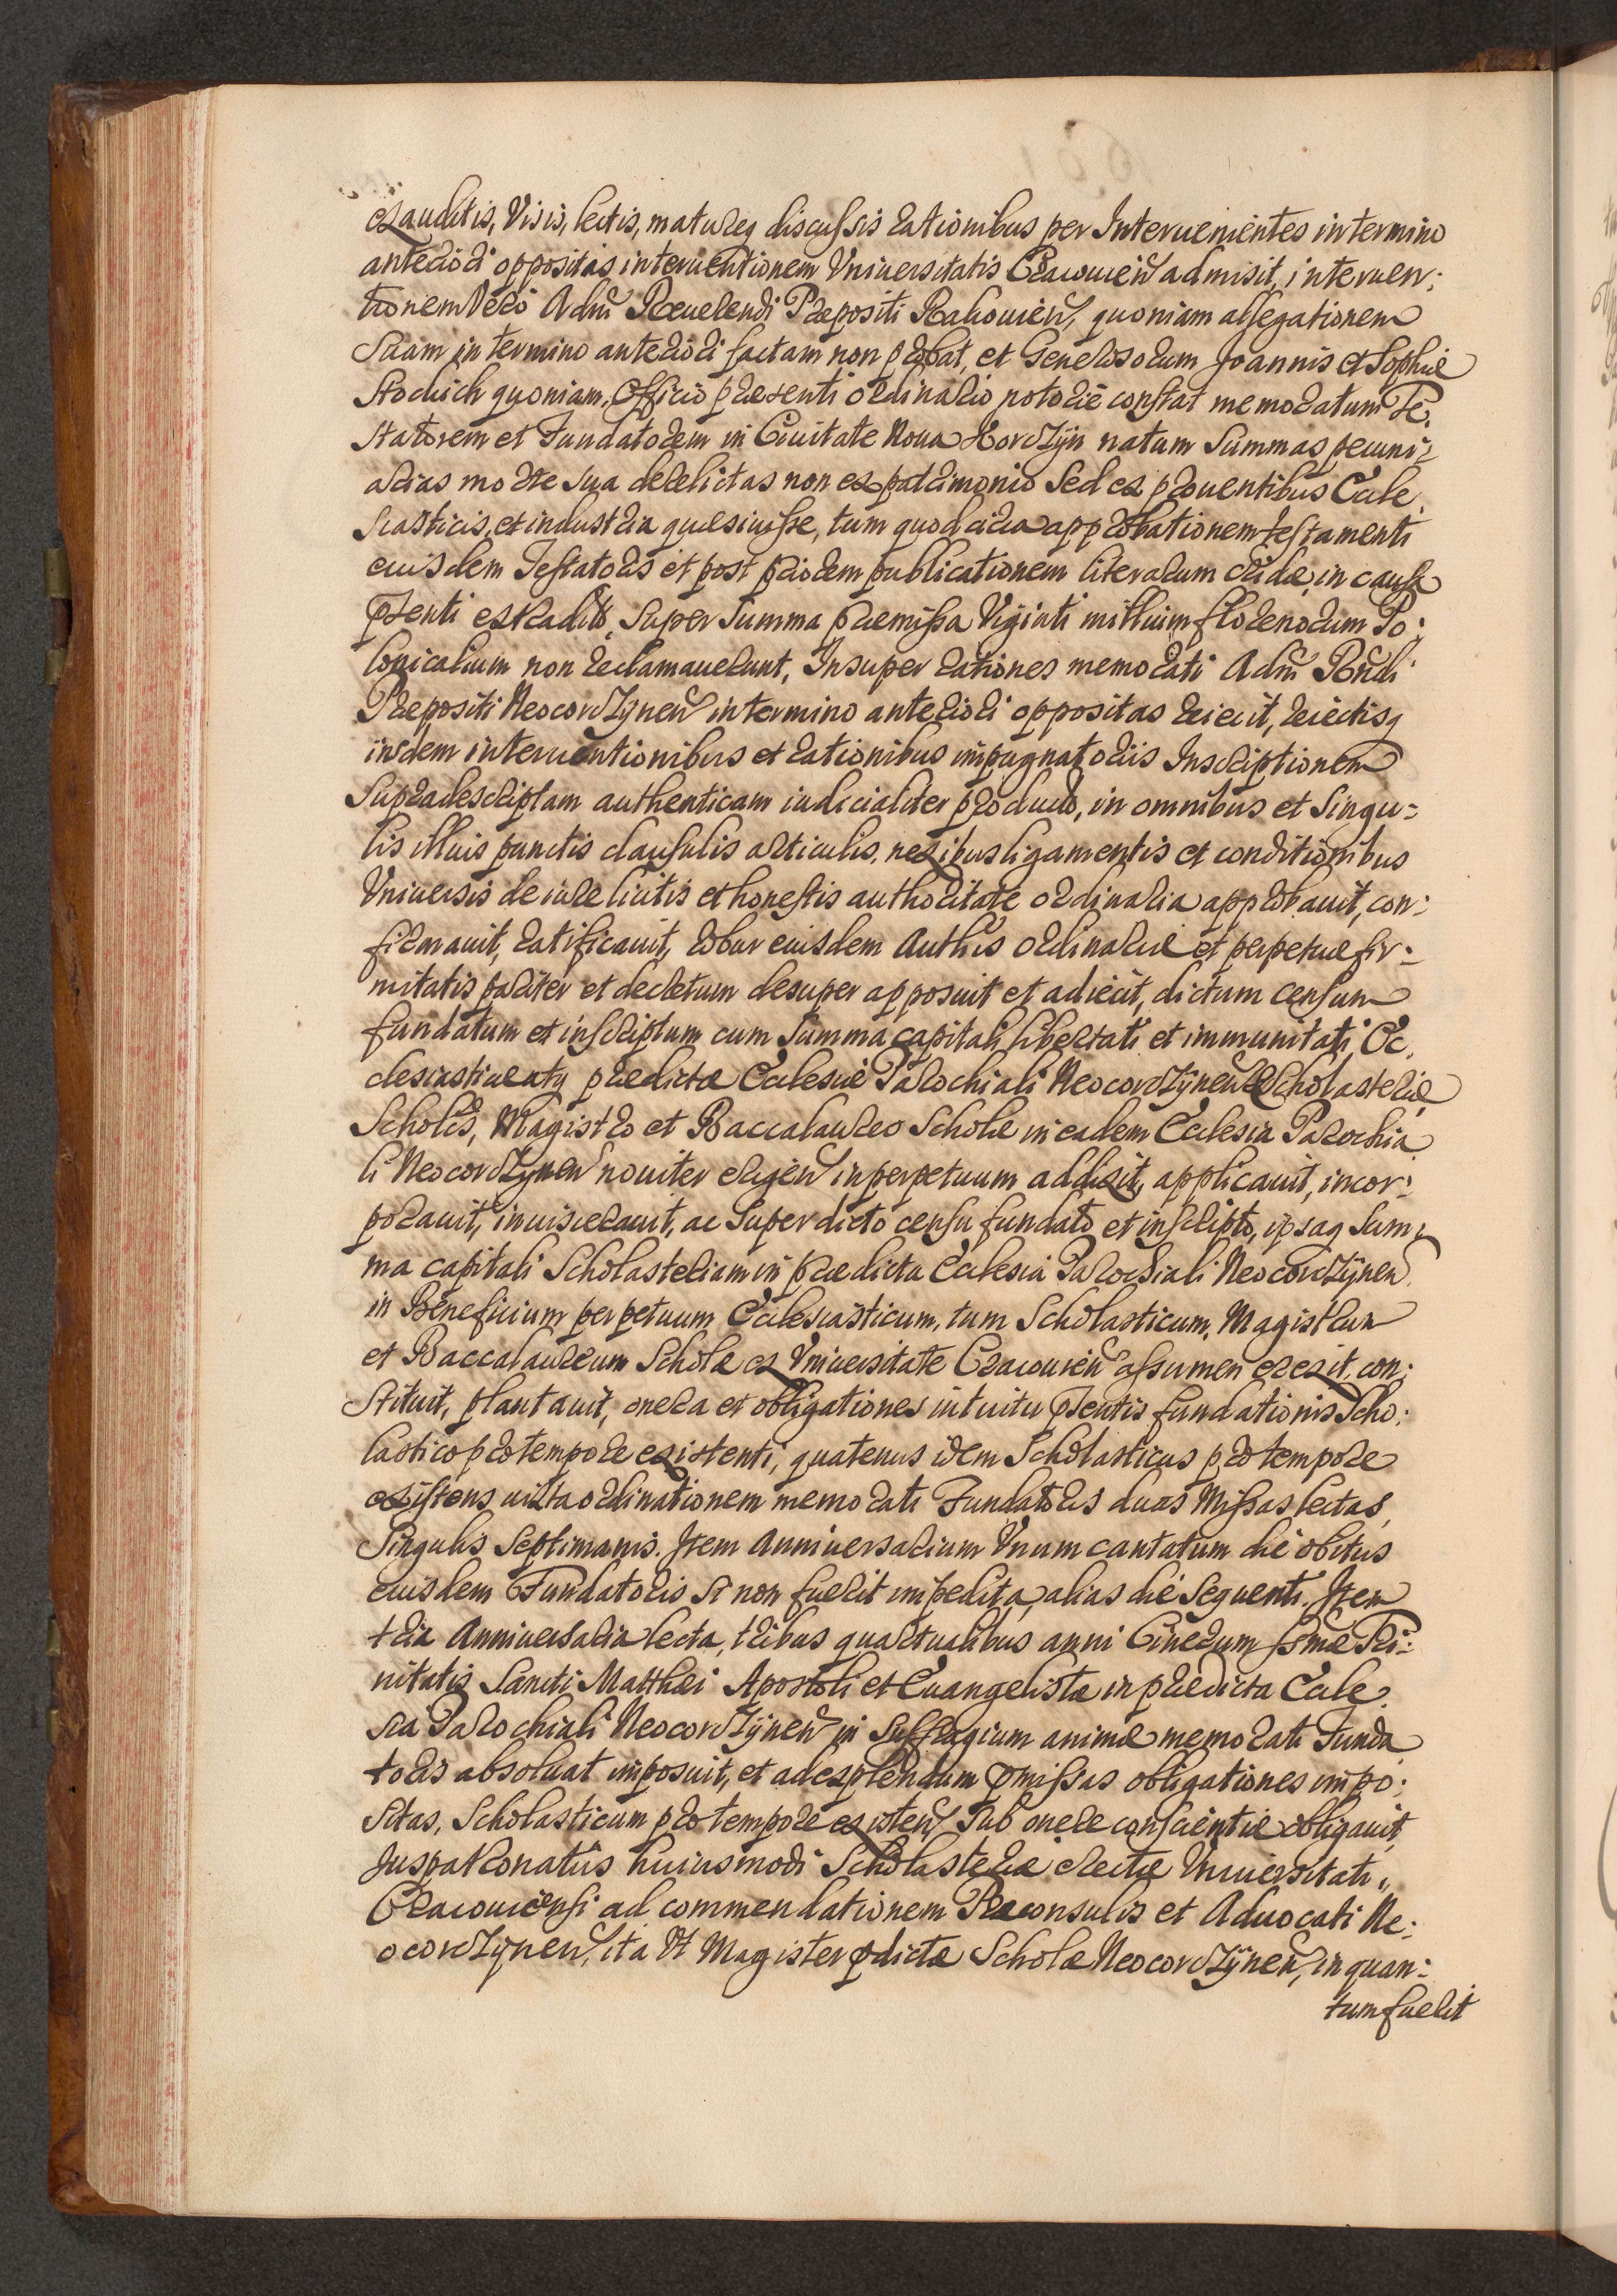 exauditis, Visis, lectis, matureq discussis rationibus per Interuenientes in termino
anteriori oppositis, interuentionem Vniuersitatis Cracouien admisit, interuen:
tionem vero Adm Reuerendi Præpositi Rakouien, quoniam allegationem
Suam in termino anteriori factam non probat, et Generosorum Joannis et Sophiæ
quoniam Officio præsenti ordinario notorie constat memoratum Te:
statorem et Fundatorem in Ciuitate Noua Korczÿn natum Summas pecuni:
arias morte sua derelictas non ex patrimonio Sed ex prouentibus Eccle:
siasticis, et industria quæsiuisse, tum quod circa approbationem testamenti
eiusdem Testatoris et post priorem publicationem literarum cridæ, in causa
pnti extradit, Super Summa præmissa Viginti millium florenorum Po:
lonicalium non reclamauerunt, Insuper rationes memorati Adm Rndi
Præpositi Neocorczÿnen in termino anteriori oppositas reiecit, reiectisq
iisdem interuentionibus et rationibus impugnatoriis Inscriptionem
Supradescriptam authenticam iudicialiter producto, in omnibus et Singu=
lis illius punctis clausulis articulis, nexibus ligamentis et conditionibus
Vniuersis de iure licitis et honestis authoritate ordinaria approbauit, con:
firmauit, ratificauit, robur eiusdem Authtis ordinariæ et perpetuæ fir:
mitatis pariter et decretum desuper apposuit et adiecit, dictum censum
fundatum et inscriptum cum Summa capitali libertati et immunitati Ec:
clesiasticæ atq prædictæ Ecclesiæ Parochiali Neocorczÿnen Scholasteriæ
Scholæ, Magistro et Baccalaureo Scholæ in eadem Ecclesia Parochia
li Neocorczÿnen nouiter erigen in perpetuum addixit, applicauit, incor:
porauit, inuiscerauit, ac Super dicto censu fundato et inscripto, ipsaq Sum:
ma capitali Scholasteriam in prædicta Ecclesia Parochiali Neocorczÿnen
in Beneficium perpetuum Ecclesiasticum, tum Scholasticum, Magistrum
et Baccalaureum Scholæ ex Vniuersitate Cracouien assumen erexit, con:
stituit, plantauit, onera et obligationes intuitu pntis fundationis Scho:
lastico pro tempore existenti, quatenus idem Scholasticus pro tempore
existens iuxta ordinationem memorati Fundatoris duas Missas lectas,
Singulis Septimanis. Item Anniuersarium Vnum cantatum die obitus
eiusdem Fundatoris Si non fuerit impedita, alias die Sequenti. Item
tria Anniuersaria lecta, tribus quartualibus anni Cinerum ssmæ Tri:
nitatis Sancti Matthæi Apostoli et Euangelistæ in prædicta Eccle:
sia Parochiali Neocorczÿnen in Suffragium animæ memorati Funda
toris absoluat imposuit, et ad explendum pmissas obligationes impo:
sitas, Scholasticum pro tempore existen Sub onere conscientiæ obligauit,
Juspatronatus huiusmodi Scholasteriæ erectæ Vniuersitati
Cracouiensi ad commendationem Præconsulis et Aduocati Ne:
ocorczÿnen, ita Vt Magister pdictæ Scholæ Neocorczÿnen, in quan:
tum fuerit